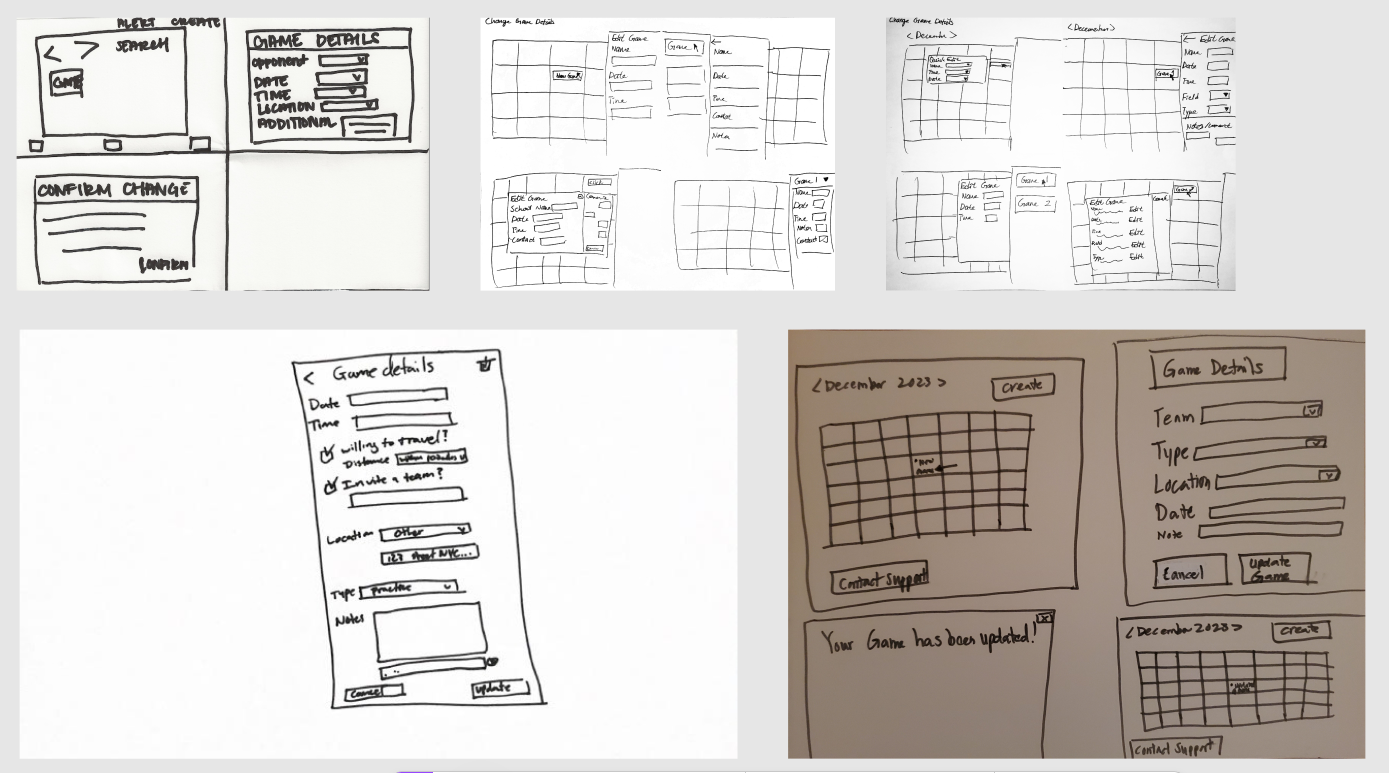 ALERT CREATE
< > SEARCH
GAME
GAME DETAILS
opponent
DATE
TIME
LOCATION
ADDITIONAL
CONFIRM CHANGE
CONFIRM
Change Game Details
New Game
Edit Game
Name
Date
Time
Game
Name
Date
Time
Contact
Notes
Edit Game
School Name
Date
Time
Contact
Game 1
Name
Date
Time
Notes
Contact
Change Game Details
< December >
Quick Edit
Name
Time
Date
< December >
Game
Edit Game
Name
Date
Time
Field
Type
Notes/comment
Edit Game
Name
Date
Time
Game 1
Game 2
Edit Game
Name Edit
Edit
Time Edit
Field Edit
Type Edit
Game
< Game details
Date
Time
willing to travel?
Distance
Invite a team?
Location Other
123 street NYC...
Type Practice
Notes
Cancel
update
< December 2023 >
Create
New Game
Contact Support
Game Details
Team
Type
Location
Date
Note
Cancel
Update Game
Your Game has been updated! X
< December 2023 >
Create
Contact Support